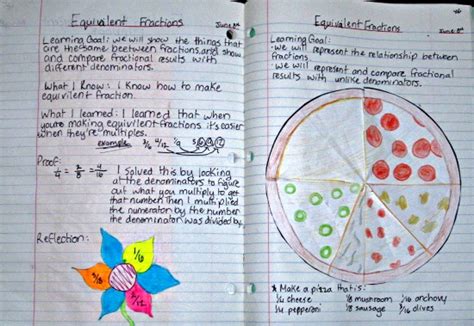 Equivalent Fractions
June 2nd
Learning Goal: we will show the things that
are the same beetween fractions, and show
and compare fractional results with
different denominators.
What I Know: I know how to make
equivilent fraction.
What I learned: I learned that when
you're making equivilent fractions it's easier
when they're multiples.
example
Proof:
1/4 = 2/8 = 4/16
I solved this by looking
at the denominators to figure
out what you multiply to get
that number. Then I multiplied
the numerator by the number
the denominator was divided by.
Reflection:
Equivalent Fractions
Learning Goal:
we will represent the relationship between
fractions
we will represent and compare fractional
results with unlike denominators.
* Make a pizza that is:
1/4 cheese
1/8 mushroom
1/16 anchovy
1/4 pepperoni
1/8 sausage
3/16 olives